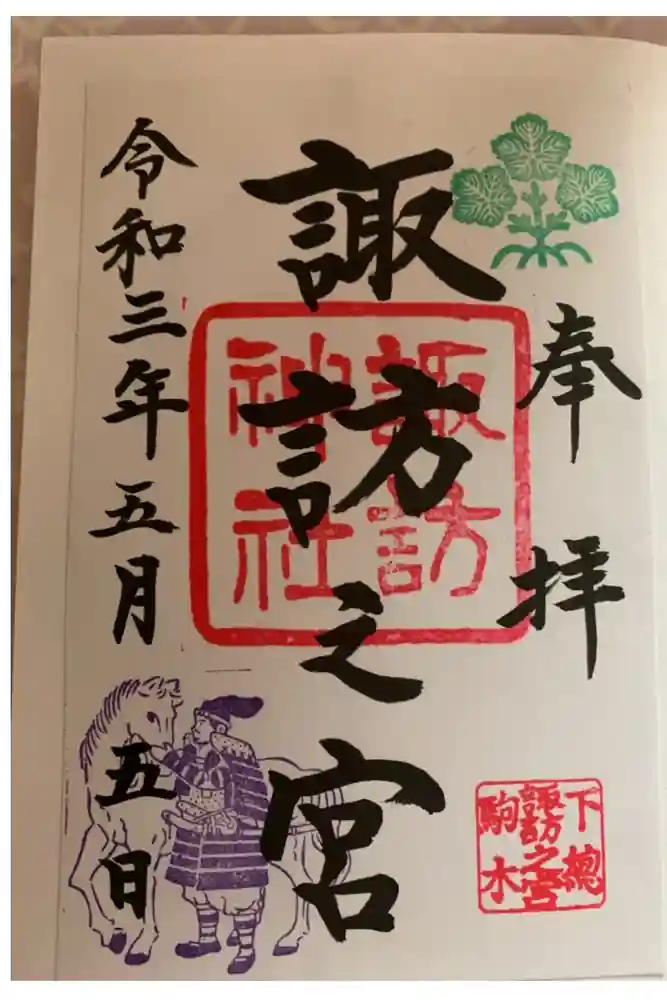 奉拝
下總
諏訪之宮
駒木
諏訪之宮
諏訪
神社
令和三年五月五日